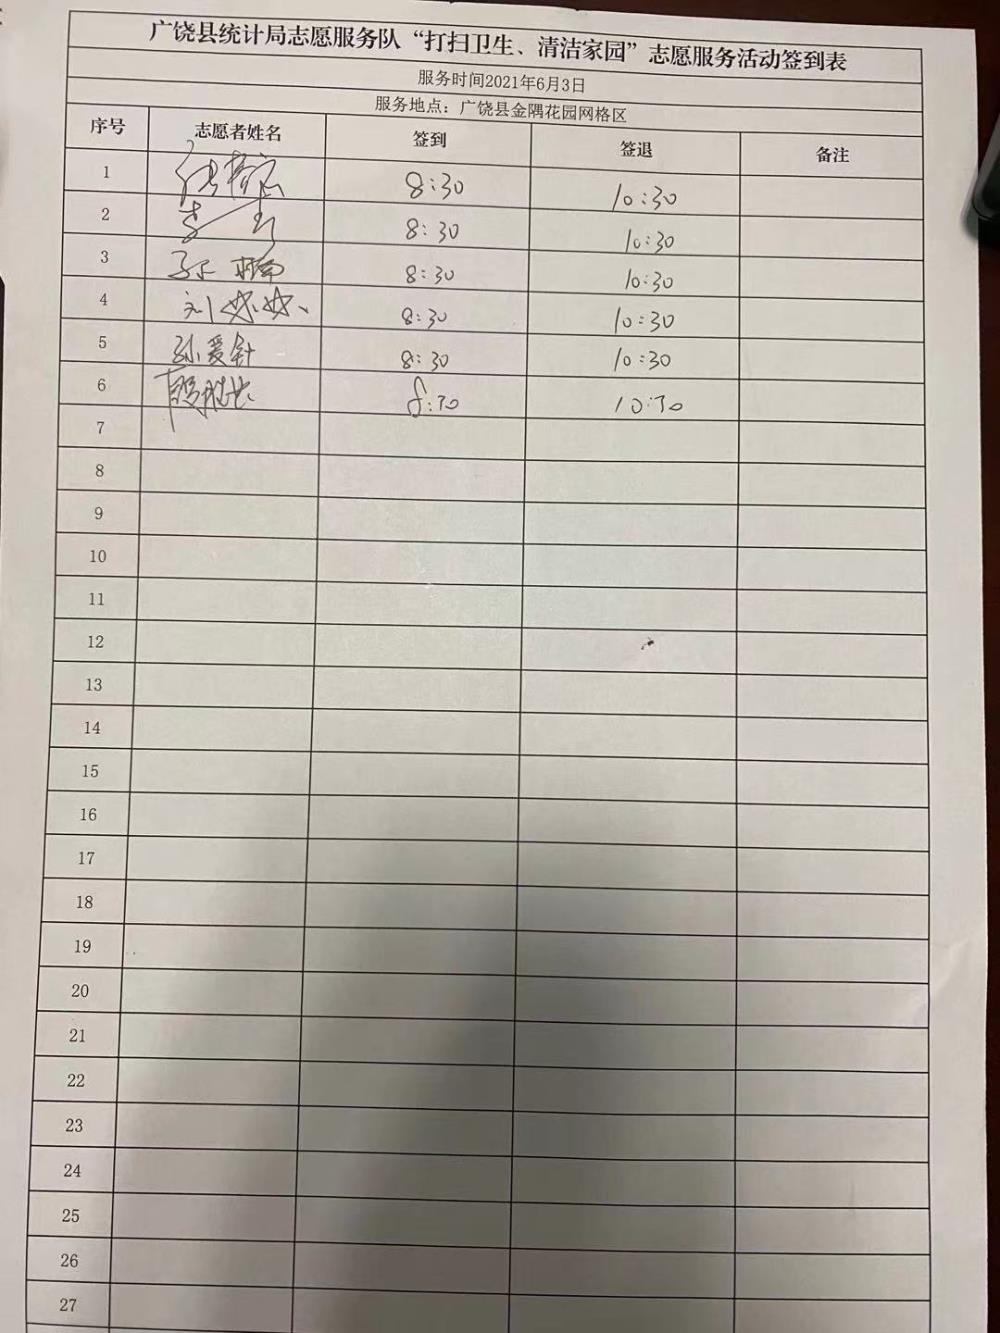 广饶县统计局志愿服务队“打扫卫生、清洁家园”志愿服务活动签到表
服务时间2021年6月3日
服务地点：广饶县金隅花园网格区
序号 志愿者姓名 签到 签退 备注
1 8:30 10:30
2 8:30 10:30
3 孙楠 8:30 10:30
4 刘姝姝 8:30 10:30
5 孙爱针 8:30 10:30
6 8:30 10:30
7
8
9
10
11
12
13
14
15
16
17
18
19
20
21
22
23
24
25
26
27